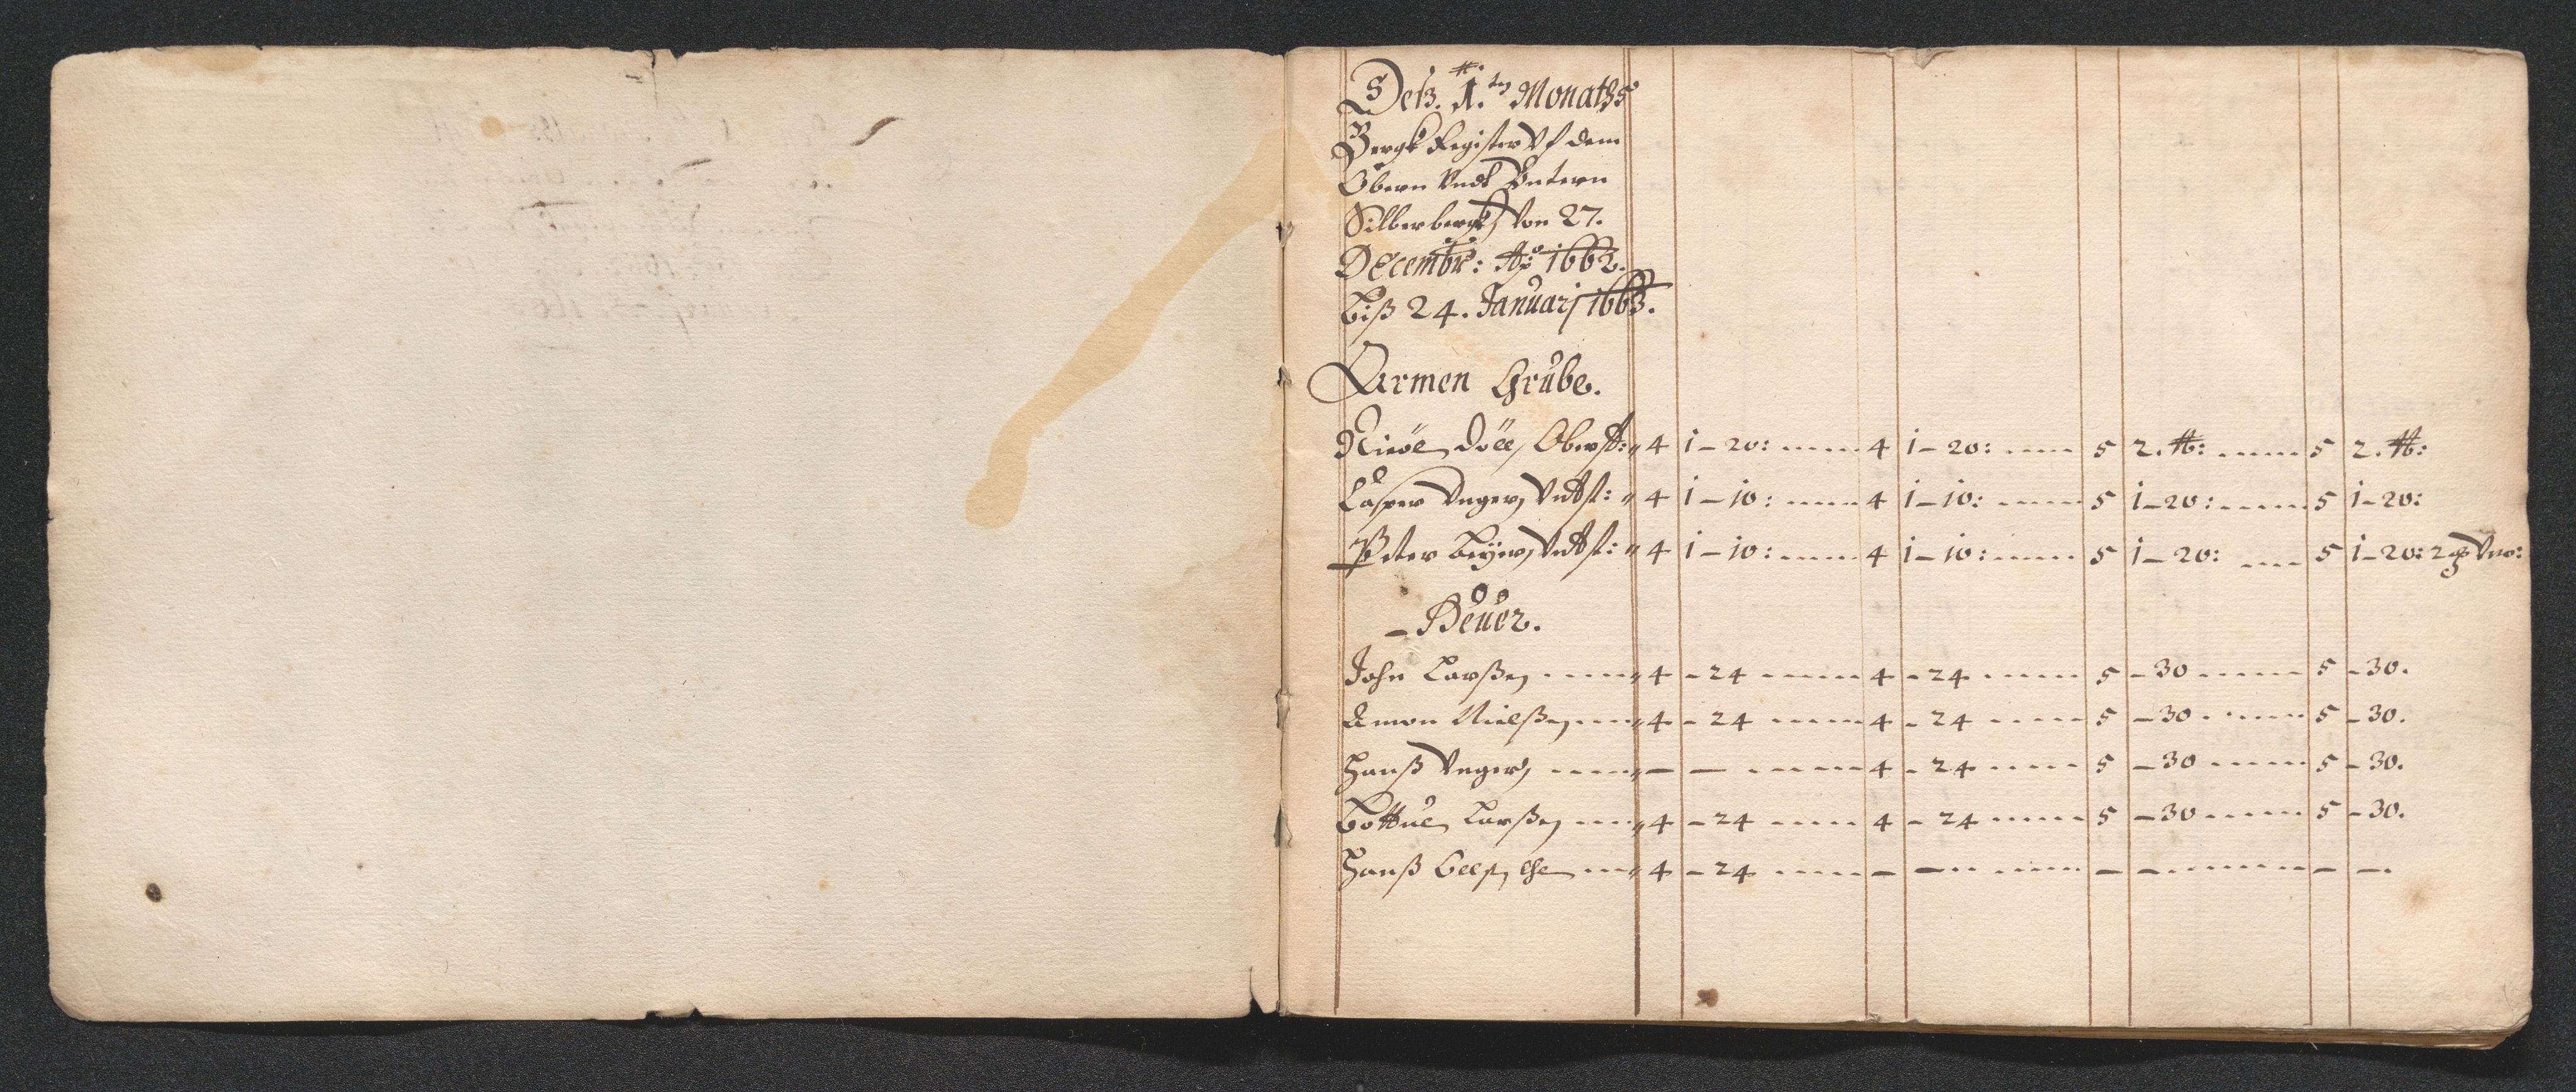 Deß. 1.ten Monaths
Bergk Register Vf dem
Obern Vndt Vntern
Silberbergk, Von 27.
Decembr: Aō 1662.
biß 24. Januarj 1663.
Armen Grube.
Oberst: 4 1-20: 4 1-20: 5 2. 5 2.
Casper Unger, Vndst: 4 1-10: 4 1-10: 5 1-20: 5 1-20:
Peter Beÿer, Vndst: 4 1-10: 4 1-10: 5 1-20: 5 1-20:
Heüer.
John Larßen 4 - 24 4 - 24 5 - 30 5 - 30.
Amon Nielßen 4 - 24 4 - 24 5 - 30 5 - 30.
Hanß Unger - - 4 - 24 5 - 30 5 - 30.
Larßen 4 - 24 4 - 24 5 - 30 5 - 30.
Hanß 4 - 24 - - - - - -